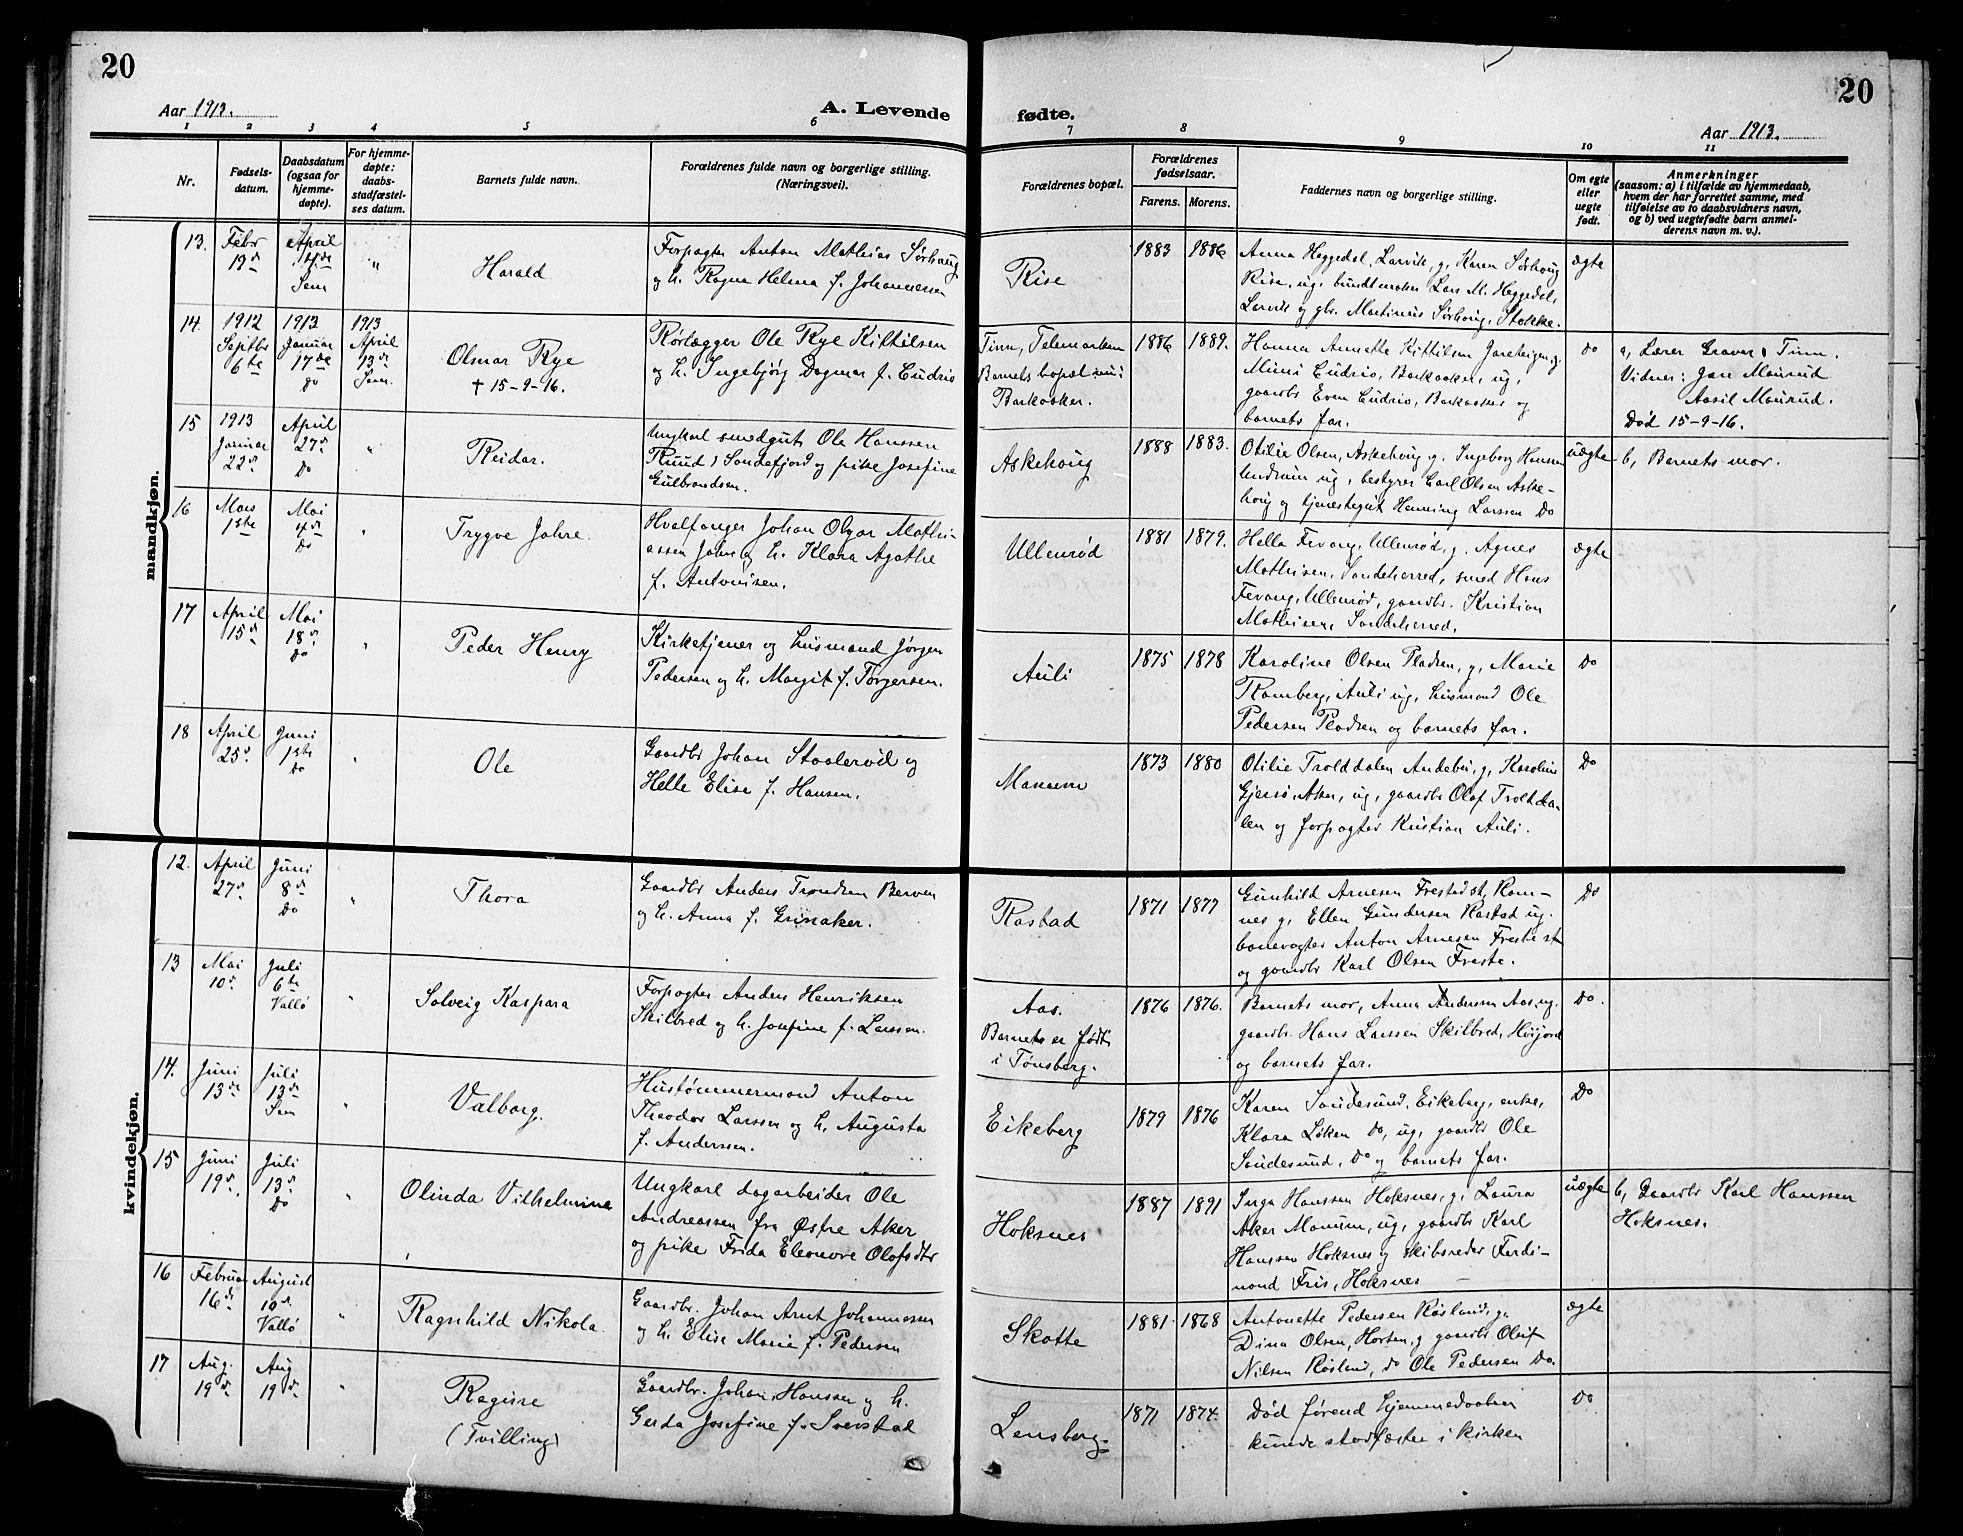 20
20
Aar 1913.
A. Levende
fødte.
Aar 1913.
1 2 3 4 5 6 7 8 9 10 11
Nr.
Fødsels-
datum.
Daabsdatum
(ogsaa for
hjemme-
døpte).
For hjemme-
døpte:
daabs-
stadfæstel-
ses datum.
Barnets fulde navn.
Forældrenes fulde navn og borgerlige stilling.
(Næringsvei).
Forældrenes bopæl.
Forældrenes
fødselsaar.
Farens. Morens.
Faddernes navn og borgerlige stilling.
Om egte
eller
uegte
født.
Anmerkninger
(saasom: a) i tilfælde av hjemmedaab,
hvem der har forrettet samme, med
tilføielse av to daabsvidners navn,
og b) ved uegtefødte barn anmel-
derens navn m. v.).
mandkjøn.
13.
Febr
19de
April
Sem
"
Harald
Forpagter Anton Mathias Sørhaug
og h. Ragna Helma f. Johannessen
Rise
1883 1886
Anna Heggedal, Larvik, g, Karen Sørhoug
Rise, ug, bundtmaker Lars M. Heggedal,
Larvik og gbr. Martinius Sørhoug, Stokke.
ægte
14.
1912
Septbr
6te
1913
Januar
17de
do
1913
April
13de
Sem.
Olmar Rye
+ 15-9-16.
Rørlægger Ole Rye Kittilsen
og h. Ingebjørg Dagmar f. Eudrio
Tinn, Telemarken
Barnets bopæl
Barkaaker.
1886 1889.
Hanna Annette Kittilsen Jareteigen, g.
Mimi Eudrio, Barkaaker, ug,
gaardb Even Eudrio, Barkaaker og
barnets far.
do
a, Lærer Graver i Tinn.
Vidner: Gare Maurud
Aasil Maurud.
Død 15-9-16.
15
1913
Januar
22de
April
27de
Do
"
Reidar.
Ungkarl smedgut Ole Hanssen
Ruud i Sandefjord og pike Josefine
Gulbrandsen.
Askehoug
1888 1883.
Otilie Olsen, Askehoug g. Ingeborg Hansen
Undrum ug, bestyrer Carl Olsen Aske-
houg og tjenestegut Henning Larssen Do
uægte
b, Barnets mor.
16
Mars
1ste
Mai
4de
Do
"
Trygve Jahre.
Hvalfanger Johan Olgar Mathi-
assen Jahre og h. Klara Agathe
f. Antonisen.
Ullenrød
1881 1879.
Hella Fevang, Ullenrød, g. Agnes
Mathisen, Sandeherred, smed Hans
Fevang, Ullenrød, gaardbr. Kristian
Mathisen, Sandeherred.
ægte
17
April
15de
Mai
18de
Do
"
Peder Henry
Kirketjener og husmand Jørgen
Pedersen og h. Margit f. Torgersen.
Auli
1875 1878
Karoline Olsen Pladsen, g, Marie
Ramberg, Auli ug, husmand Ole
Pedersen Pladsen og barnets far.
Do
18
April
25de
Juni
1ste
Do
"
Ole
Gaardbr Johan Staalerød og
Helle Elise f. Hansen.
Manum
1873 1880
Otilie Trolddalen Andebu, g, Karoline
Gjersø, Aker, ug, gaardbr Olaf Troldda-
len og forpagter Kristian Auli.
Do
kvindekjøn.
12.
April
27de
Juni
8de
Do
"
Thora
Gaardbr Anders Trondsen Berven
og h. Anna f. Grinaker.
Rastad
1871 1877
Gunhild Arnesen Frestad st, Ram-
nes g, Ellen Gundersen Rastad ug.
banevogter Anton Arnesen Freste st
og gaardbr Karl Olsen Freste.
Do
13
Mai
10de
Juli
6te
Vallø
"
Solveig Kaspara
Forpagter Anders Henriksen
Skilbred og h. Josefine f. Larssen.
Aas.
Barnets er født
i Tønsberg.
1876 1876.
Barnets mor, Anna Andersen Aas, ug.
gaardbr. Hans Larssen Skilbred,
og barnets far.
Do.
14.
Juni
13de
Juli
13de
Sem
"
Valborg.
Hustømmermand Anton
Theodor Larssen og h. Augusta
f. Anderssen.
Eikeberg
1879 1876
Karen Sandesund, Eikeberg, enke,
Klara Løken do, ug, gaardbr Ole
Sandesund, Do og barnets far.
Do
15
Juni
19de.
Juli
13de
Do
"
Olinda Vilhelmine
Ungkarl dagarbeider Ole
Andreassen fra Østre Aker
og pike Frida Eleonore Olofsdtr
Hoksnes
1887 1891
Inga Hanssen Hoksnes, g, Laura
Aker Manum, ug, gaardbr Karl
Hanssen Hoksnes og skibsreder Ferdi-
nand Friis, Hoksnes
uægte
b, Gaardbr Karl Hanssen
Hoksnes.
16
Februar
16de
August
10de
Vallø
"
Ragnhild Nikola.
Gaardbr. Johan Arnt Johannessen
og h. Elise Marie f. Pedersen
Skotte
1881. 1868
Antonette Pedersen Røsland, g.
Dina Olsen, Horten, g gaardbr Oluf
Nilsen Røsland, do Ole Pedersen Do.
ægte
17
Aug.
19de
Aug
19de
"
Ragne
(Tvilling)
Gaardbr. Johan Hanssen og h.
Gerda Josefine f. Sverstad
Lensberg.
1871 1874.
Død førend hjemmedaaben
kunde stadfæstes i kirken
Do